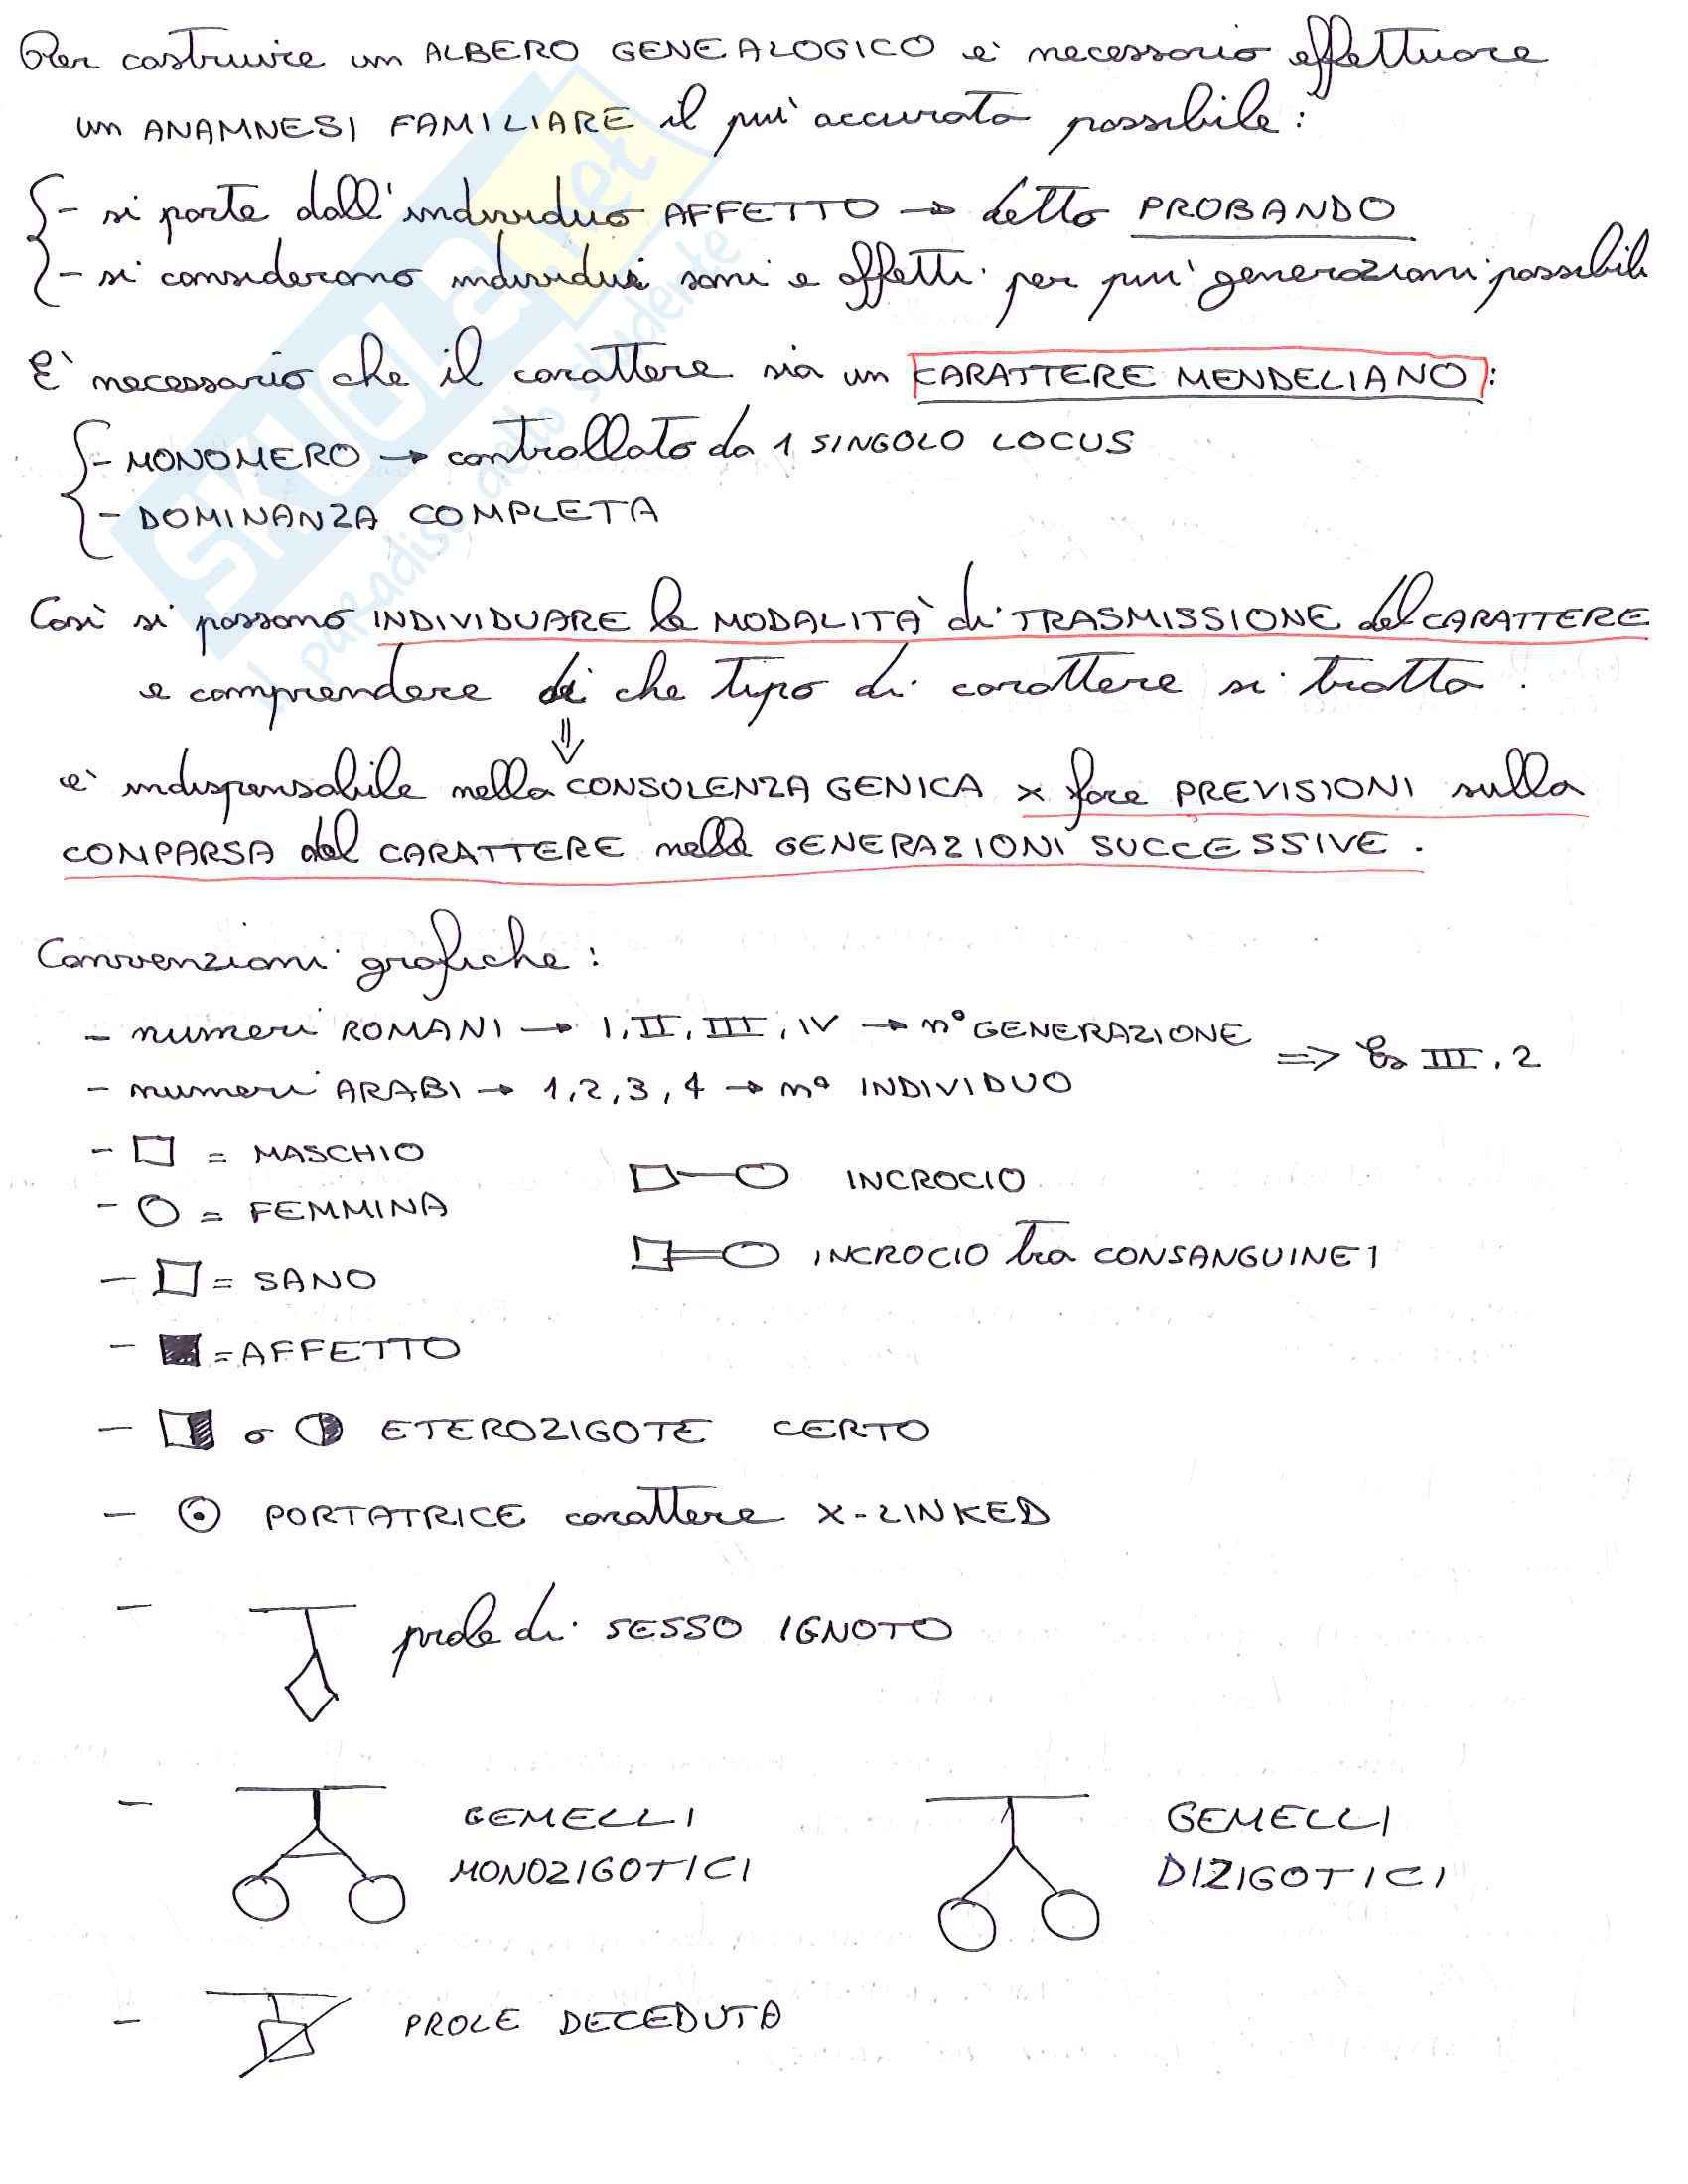 Per costruire un ALBERO GENEALOGICO e' necessario effettuare
un ANAMNESI FAMILIARE il piu' accurata possibile:
- si parte dall'individuo AFFETTO → detto PROBANDO
- si considerano individui sani e affetti per piu' generazioni possibili
E' necessario che il carattere sia un CARATTERE MENDELIANO:
- MONOMERO → controllato da 1 SINGOLO LOCUS
- DOMINANZA COMPLETA
Così si possono INDIVIDUARE le MODALITA' di TRASMISSIONE del CARATTERE
e comprendere di che tipo di carattere si tratta.
⇓
e' indispensabile nella CONSOLENZA GENICA x fare PREVISIONI sulla
COMPARSA del CARATTERE nelle GENERAZIONI SUCCESSIVE.
Convenzioni grafiche:
- numeri ROMANI → I, II, III, IV → n° GENERAZIONE
- numeri ARABI → 1, 2, 3, 4 → n° INDIVIDUO
=> Es III, 2
- □ = MASCHIO
- ○ = FEMMINA
INCROCIO
INCROCIO tra CONSANGUINEI
- □ = SANO
- ■ = AFFETTO
- o ETEROZIGOTE CERTO
- PORTATRICE carattere X-LINKED
- prole di SESSO IGNOTO
- GEMELLI
MONOZIGOTICI
GEMELLI
DIZIGOTICI
- PROLE DECEDUTA
SKUOLA.net
il paradiso dello studente